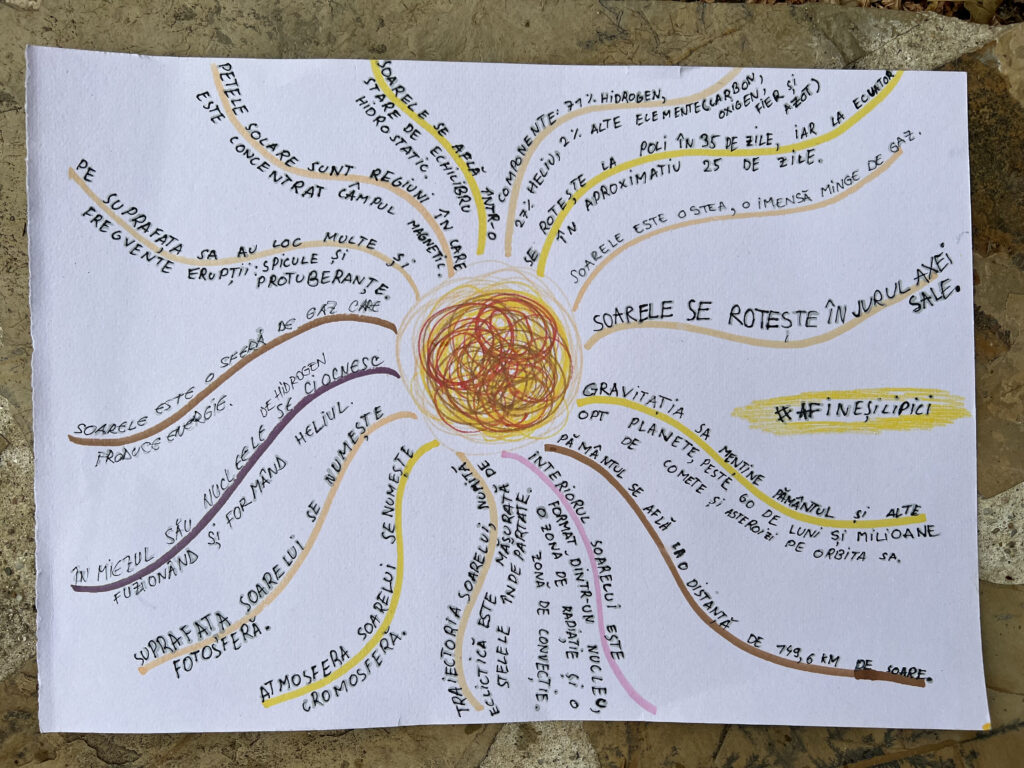 PE SUPRAFAȚA SA AU LOC MULTE ȘI
FRECVENTE ERUPȚII: SPICULE ȘI
PROTUBERANȚE.
PETELE SOLARE SUNT REGIUNI ÎN CARE
ESTE CONCENTRAT CÂMPUL MAGNETIC.
SOARELE SE AFLĂ ÎNTR-O
STARE DE ECHILIBRU
HIDROSTATIC.
COMPONENTE: 71% HIDROGEN,
27% HELIU, 2% ALTE ELEMENTE (CARBON,
OXIGEN,
FIER ȘI
AZOT)
SE ROTEȘTE LA POLI ÎN 35 DE ZILE, IAR LA ECUATOR
ÎN APROXIMATIV 25 DE ZILE.
SOARELE ESTE O STEA, O IMENSĂ MINGE DE GAZ.
SOARELE SE ROTEȘTE ÎN JURUL AXEI
SALE.
#AFINEȘILIPICI
GRAVITAȚIA SA MENȚINE PĂMÂNTUL ȘI ALTE
OPT PLANETE, PESTE 60 DE LUNI ȘI MILIOANE
DE COMETE ȘI ASTEROIZI PE ORBITA SA.
PĂMÂNTUL SE AFLĂ LA O DISTANȚĂ DE 149,6 KM DE SOARE.
INTERIORUL SOARELUI ESTE
FORMAT DINTR-UN NUCLEU,
O ZONĂ DE RADIAȚIE ȘI O
ZONĂ DE CONVECȚIE.
TRAIECTORIA SOARELUI, NUMITĂ
ECLICTICĂ ESTE MĂSURATĂ DE
STELELE ÎNDEPARTATE.
ATMOSFERA SOARELUI SE NUMEȘTE
CROMOSFERĂ.
SUPRAFAȚA SOARELUI SE NUMEȘTE
FOTOSFERĂ.
ÎN MIEZUL SĂU NUCLEELE DE HIDROGEN SE CIOCNESC
FUZIONÂND ȘI FORMÂND HELIUL.
SOARELE ESTE O SFERĂ DE GAZ CARE
PRODUCE ENERGIE.